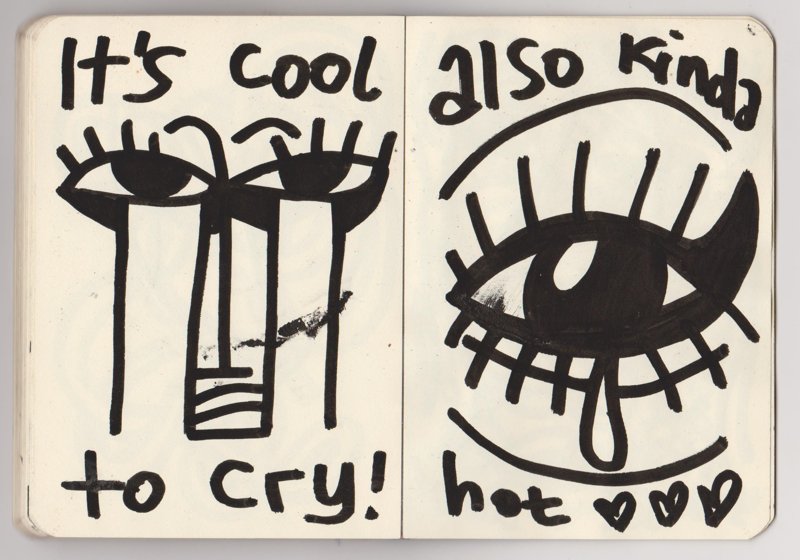 It's cool
to cry!
also kinda
hot ♡♡♡